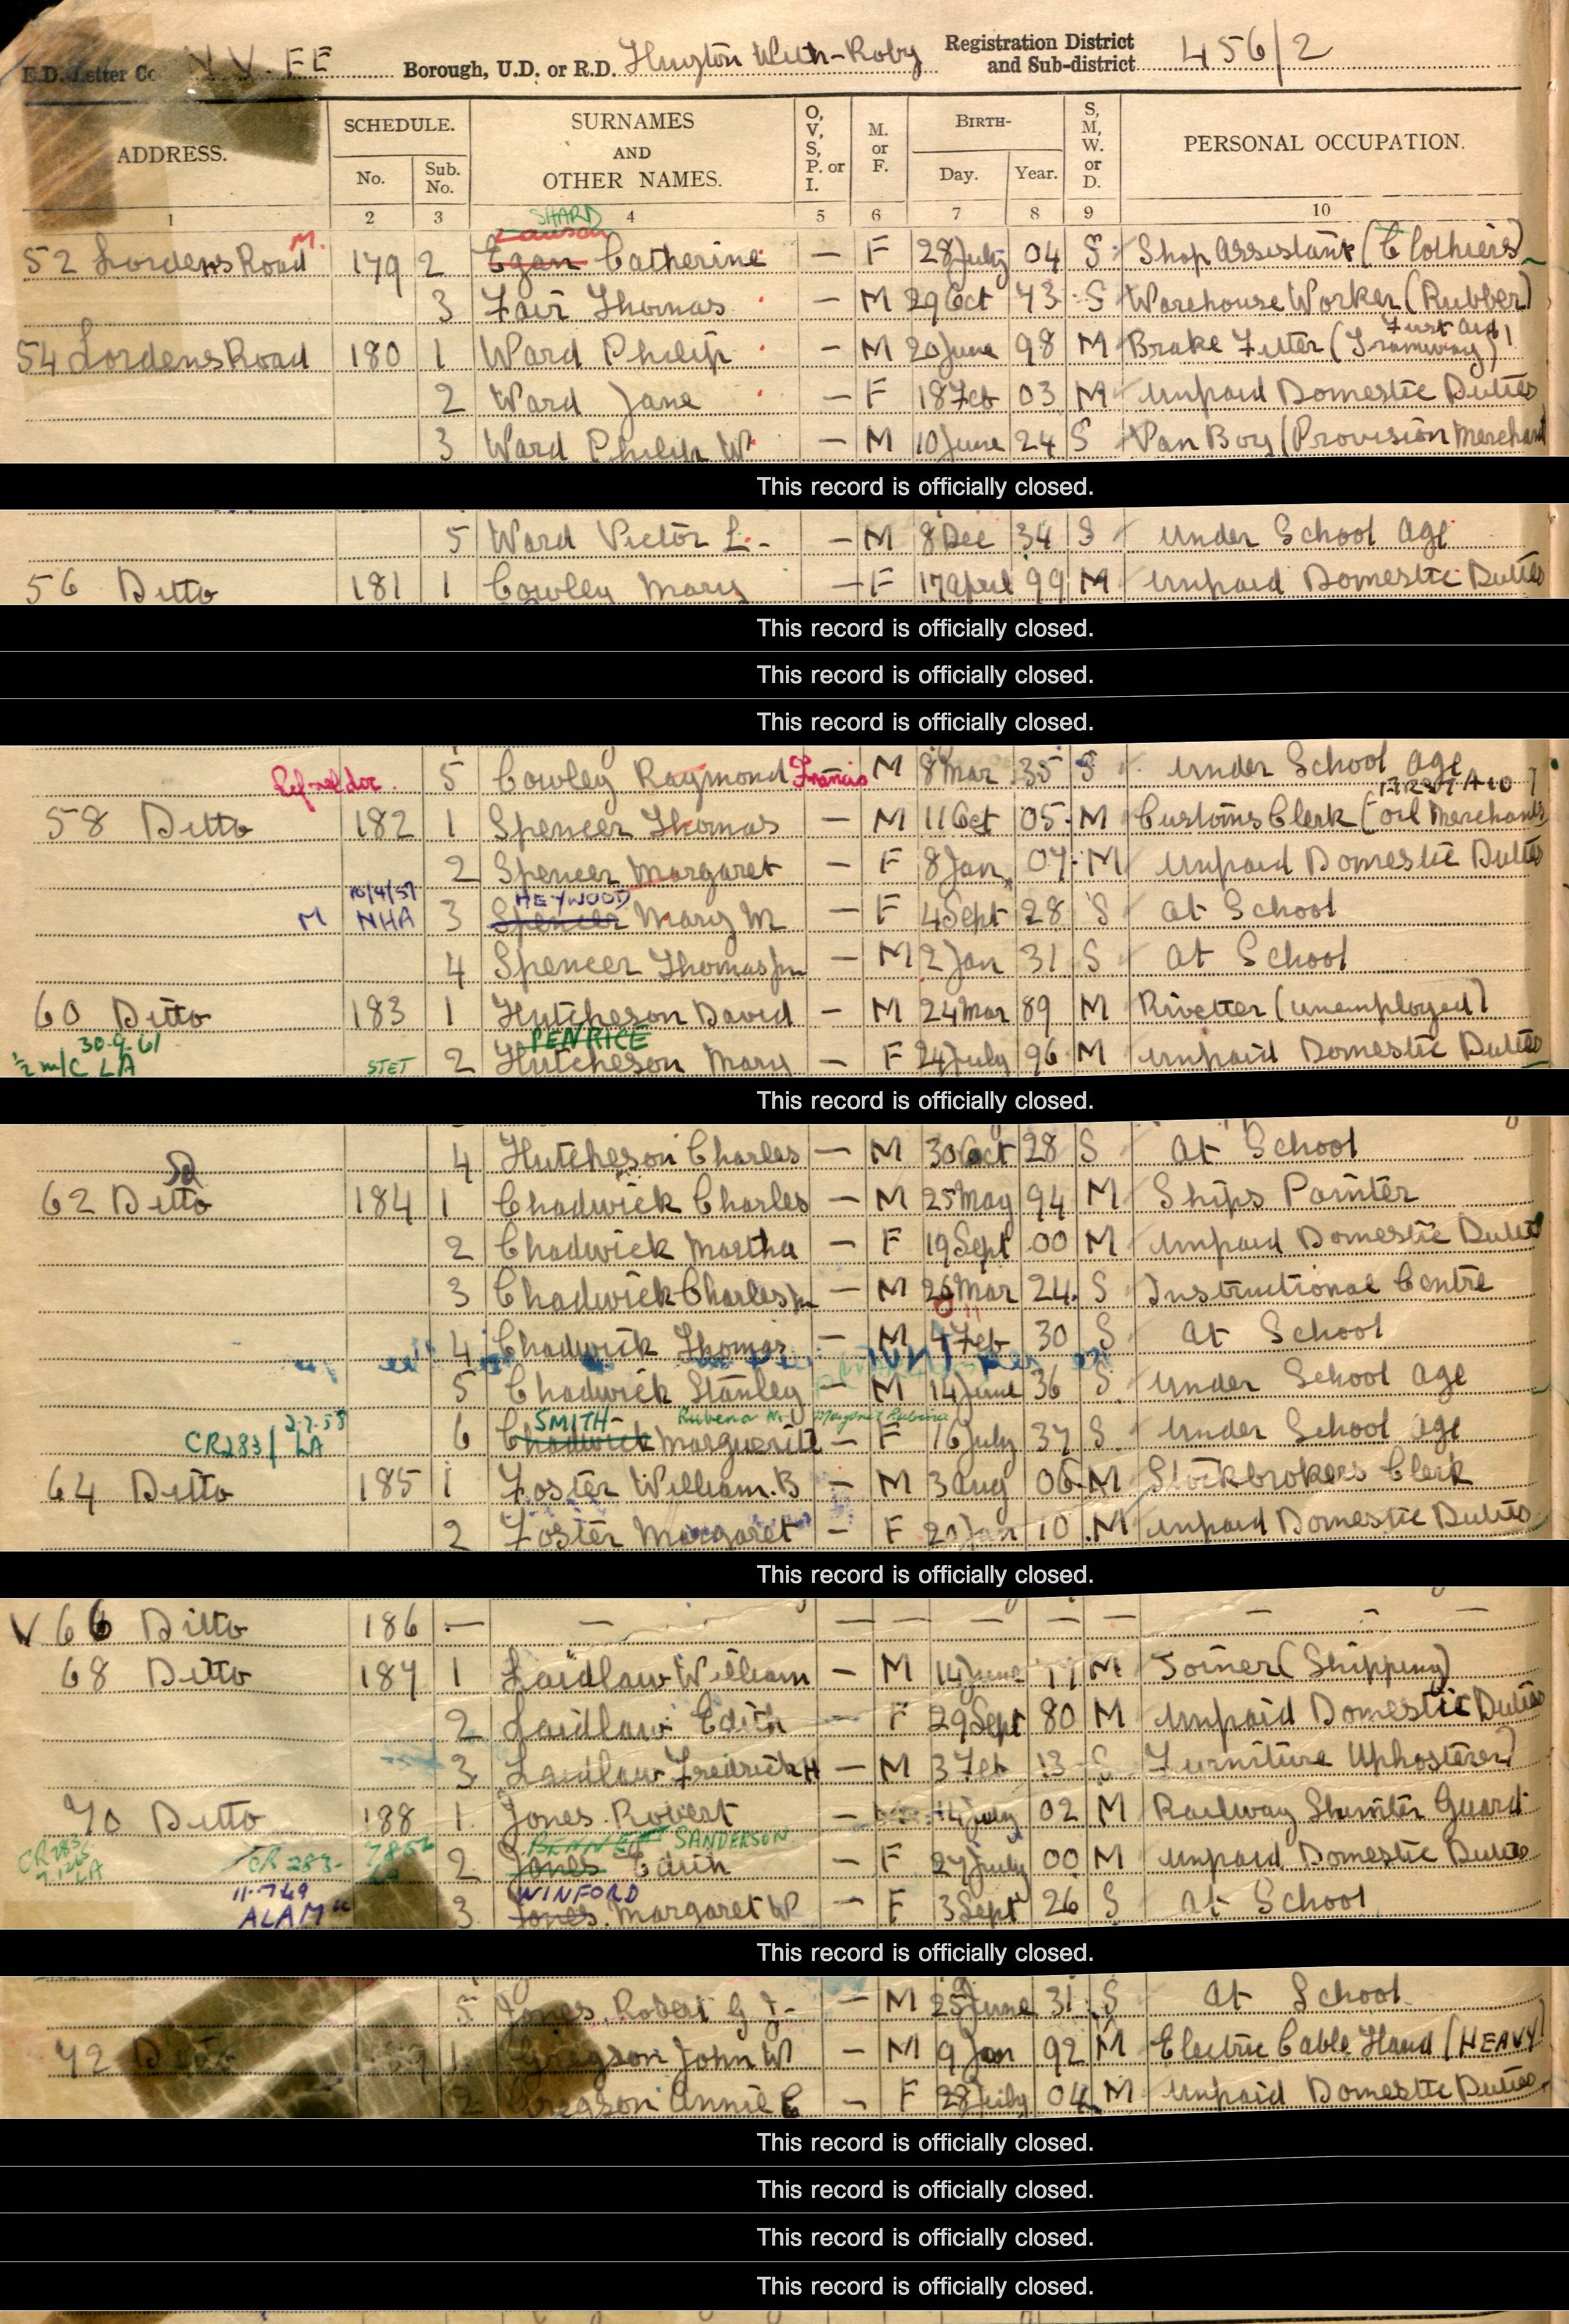 E.D. Letter Co
Borough, U.D. or R.D. Huyton With-Roby
Registration District and Sub-district 456/2
ADDRESS. SCHEDULE. No. Sub. No. SURNAMES AND OTHER NAMES. O, V, S, P. or I. M. or F. BIRTH- Day. Year. S, M, W. or D. PERSONAL OCCUPATION.
1 2 3 4 5 6 7 8 9 10
SHARD
Lawson
M.
52 Lordens Road 179 2 Egan Catherine — F 28 July 04 S Shop Assistant (Clothiers)
3 Fair Thomas — M 29 Oct 73 S Warehouse Worker (Rubber)
First Aid
54 Lordens Road 180 1 Ward Philip — M 20 June 98 M Brake Fitter (Tramway)
2 Ward Jane — F 18 Feb 03 M Unpaid Domestic Duties
3 Ward Philip W — M 10 June 24 S Van Boy (Provision Merchant
This record is officially closed.
5 Ward Victor L. — M 8 Dec 34 S Under School Age
56 Ditto 181 1 Cowley Mary — F 17 April 99 M Unpaid Domestic Duties
This record is officially closed.
This record is officially closed.
This record is officially closed.
5 Cowley Raymond Francis M 8 Mar 35 S Under School Age
FIRST AID
58 Ditto 182 1 Spencer Thomas — M 11 Oct 05 M Customs Clerk (Oil Merchants)
2 Spencer Margaret — F 8 Jan 07 M Unpaid Domestic Duties
10/4/51 HEYWOOD
M NHA 3 Spencer Mary M — F 4 Sept 28 S At School
4 Spencer Thomas Jnr — M 2 Jan 31 S At School
60 Ditto 183 1 Hutcheson David — M 24 Mar 89 M Rivetter (unemployed)
30.9.61 PENRICE
1/2 m/c LA STET 2 Hutcheson Mary — F 24 July 96 M Unpaid Domestic Duties
This record is officially closed.
4 Hutcheson Charles — M 30 Oct 28 S At School
62 Ditto 184 1 Chadwick Charles — M 25 May 94 M Ships Painter
2 Chadwick Martha — F 19 Sept 00 M Unpaid Domestic Duties
3 Chadwick Charles Jn — M 26 Mar 24 S Instructional Centre
4 Chadwick Thomas — M 4 Feb 30 S At School
5 Chadwick Stanley — M 14 June 36 S Under School Age
2.7.58 SMITH- Margaret Rubina
CR283/ LA 6 Chadwick Marguerite — F 16 July 37 S Under School Age
64 Ditto 185 1 Foster William. B — M 3 Aug 06 M Stockbrokers Clerk
2 Foster Margaret — F Jan 10 M Unpaid Domestic Duties
This record is officially closed.
V 66 Ditto 186 — — — — — — — — — —
68 Ditto 187 1 Laidlaw William — M 14 June M Joiner (Shipping)
2 Laidlaw Edith F 29 Sept 80 M Unpaid Domestic Duties
3 Laidlaw Fredrick H — M 3 Feb 13 S Furniture Uphosterer)
70 Ditto 188 1 Jones Robert — 14 July 02 M Railway Shunter Guard
BENNET SANDERSON
CR 283
LA
CR 283- 2 Jones Edith — F 27 July 00 M Unpaid Domestic Duties
11.7.49 WINFORD
ALAM 3 Jones Margaret W — F 3 Sept 26 S At School
This record is officially closed.
5 Jones Robert G J- — M 25 June 31 S At School
72 Ditto 1 Gregson John W — M 9 Jan 92 M Electric Cable Hand (HEAVY)
2 Gregson Annie E — F 28 July 04 M Unpaid Domestic Duties
This record is officially closed.
This record is officially closed.
This record is officially closed.
This record is officially closed.